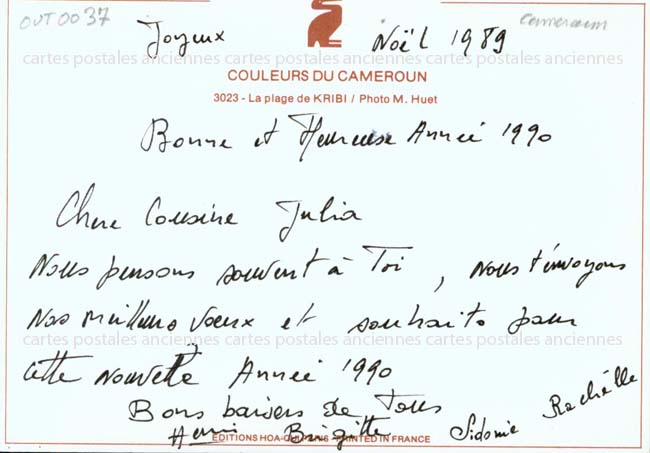 OUT0037
cameroun
Joyeux Noël 1989
cartes postales anciennes cartes postales anciennes cartes postales anciennes
COULEURS DU CAMEROUN
3023 - La plage de KRIBI / Photo M. Huet
Bonne et Heureuse Année 1990
Chere Cousine Julia
Nous pensons souvent à Toi, nous t'envoyons
Nos meilleurs Voeux et souhaits pour
cartes postales anciennes cartes postales anciennes cartes postales anciennes
cette nouvelle Année 1990
Bons baisers de Tous
Henri Brigitte Sidonie Rachelle
EDITIONS HOA-QUI PARIS - PRINTED IN FRANCE